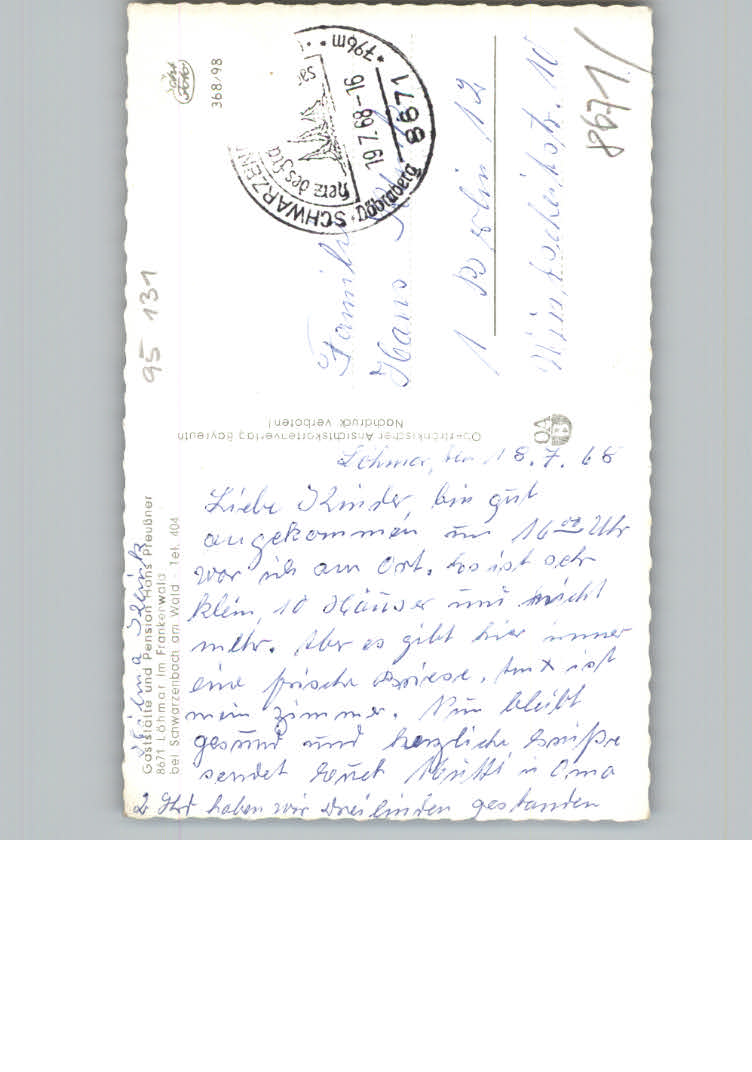 Löhmar, den 18.7.68
Liebe Kinder, bin gut
angekommen um 16 00 Uhr
war ich am Ort. Es ist sehr
klein, 10 Häuser und nicht
mehr. Aber es gibt hier immer
eine frische Briese. Am x ist
mein Zimmer. Nun bleibt
gesund und herzliche Grüße
sendet Euch Mutti u Oma
2 Std haben wir Dreilinden gestanden
Gaststätte und Pension Hans Preußner
8671 Löhmar im Frankenwald
bei Schwarzenbach am Wald - Tel. 404
Oberfränkischer Ansichtskartenverlag Bayreuth
Nachdruck verboten!
OA
368/98
95 131
SCHWARZEN
Döbraberg
8671
19.7.68-16
796m
Herz des
Familie
Hans
1 Berlin 12
8671/